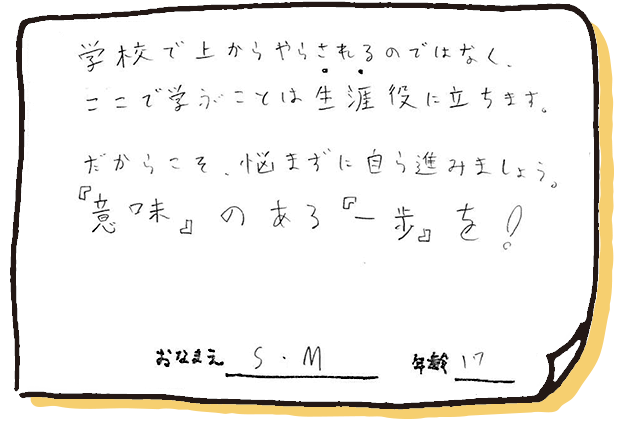 学校で上からやらされるのではなく、
ここで学ぶことは生涯役に立ちます。
だからこそ、悩まずに自ら進みましょう。
『意味』のある『一歩』を!
おなまえ S.M 年齢 17